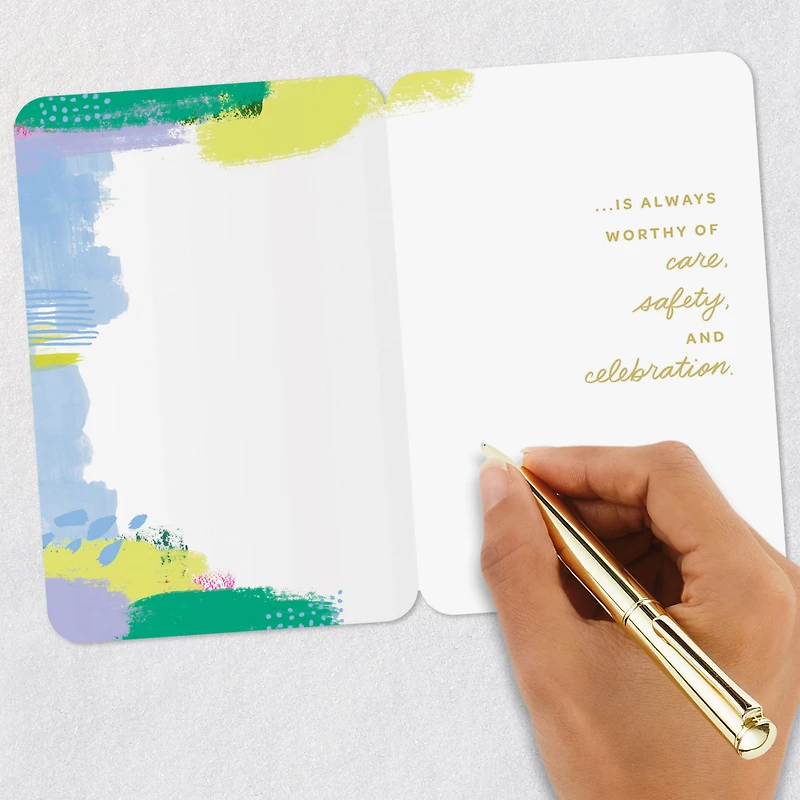 ...IS ALWAYS
WORTHY OF
care,
safety,
AND
celebration.